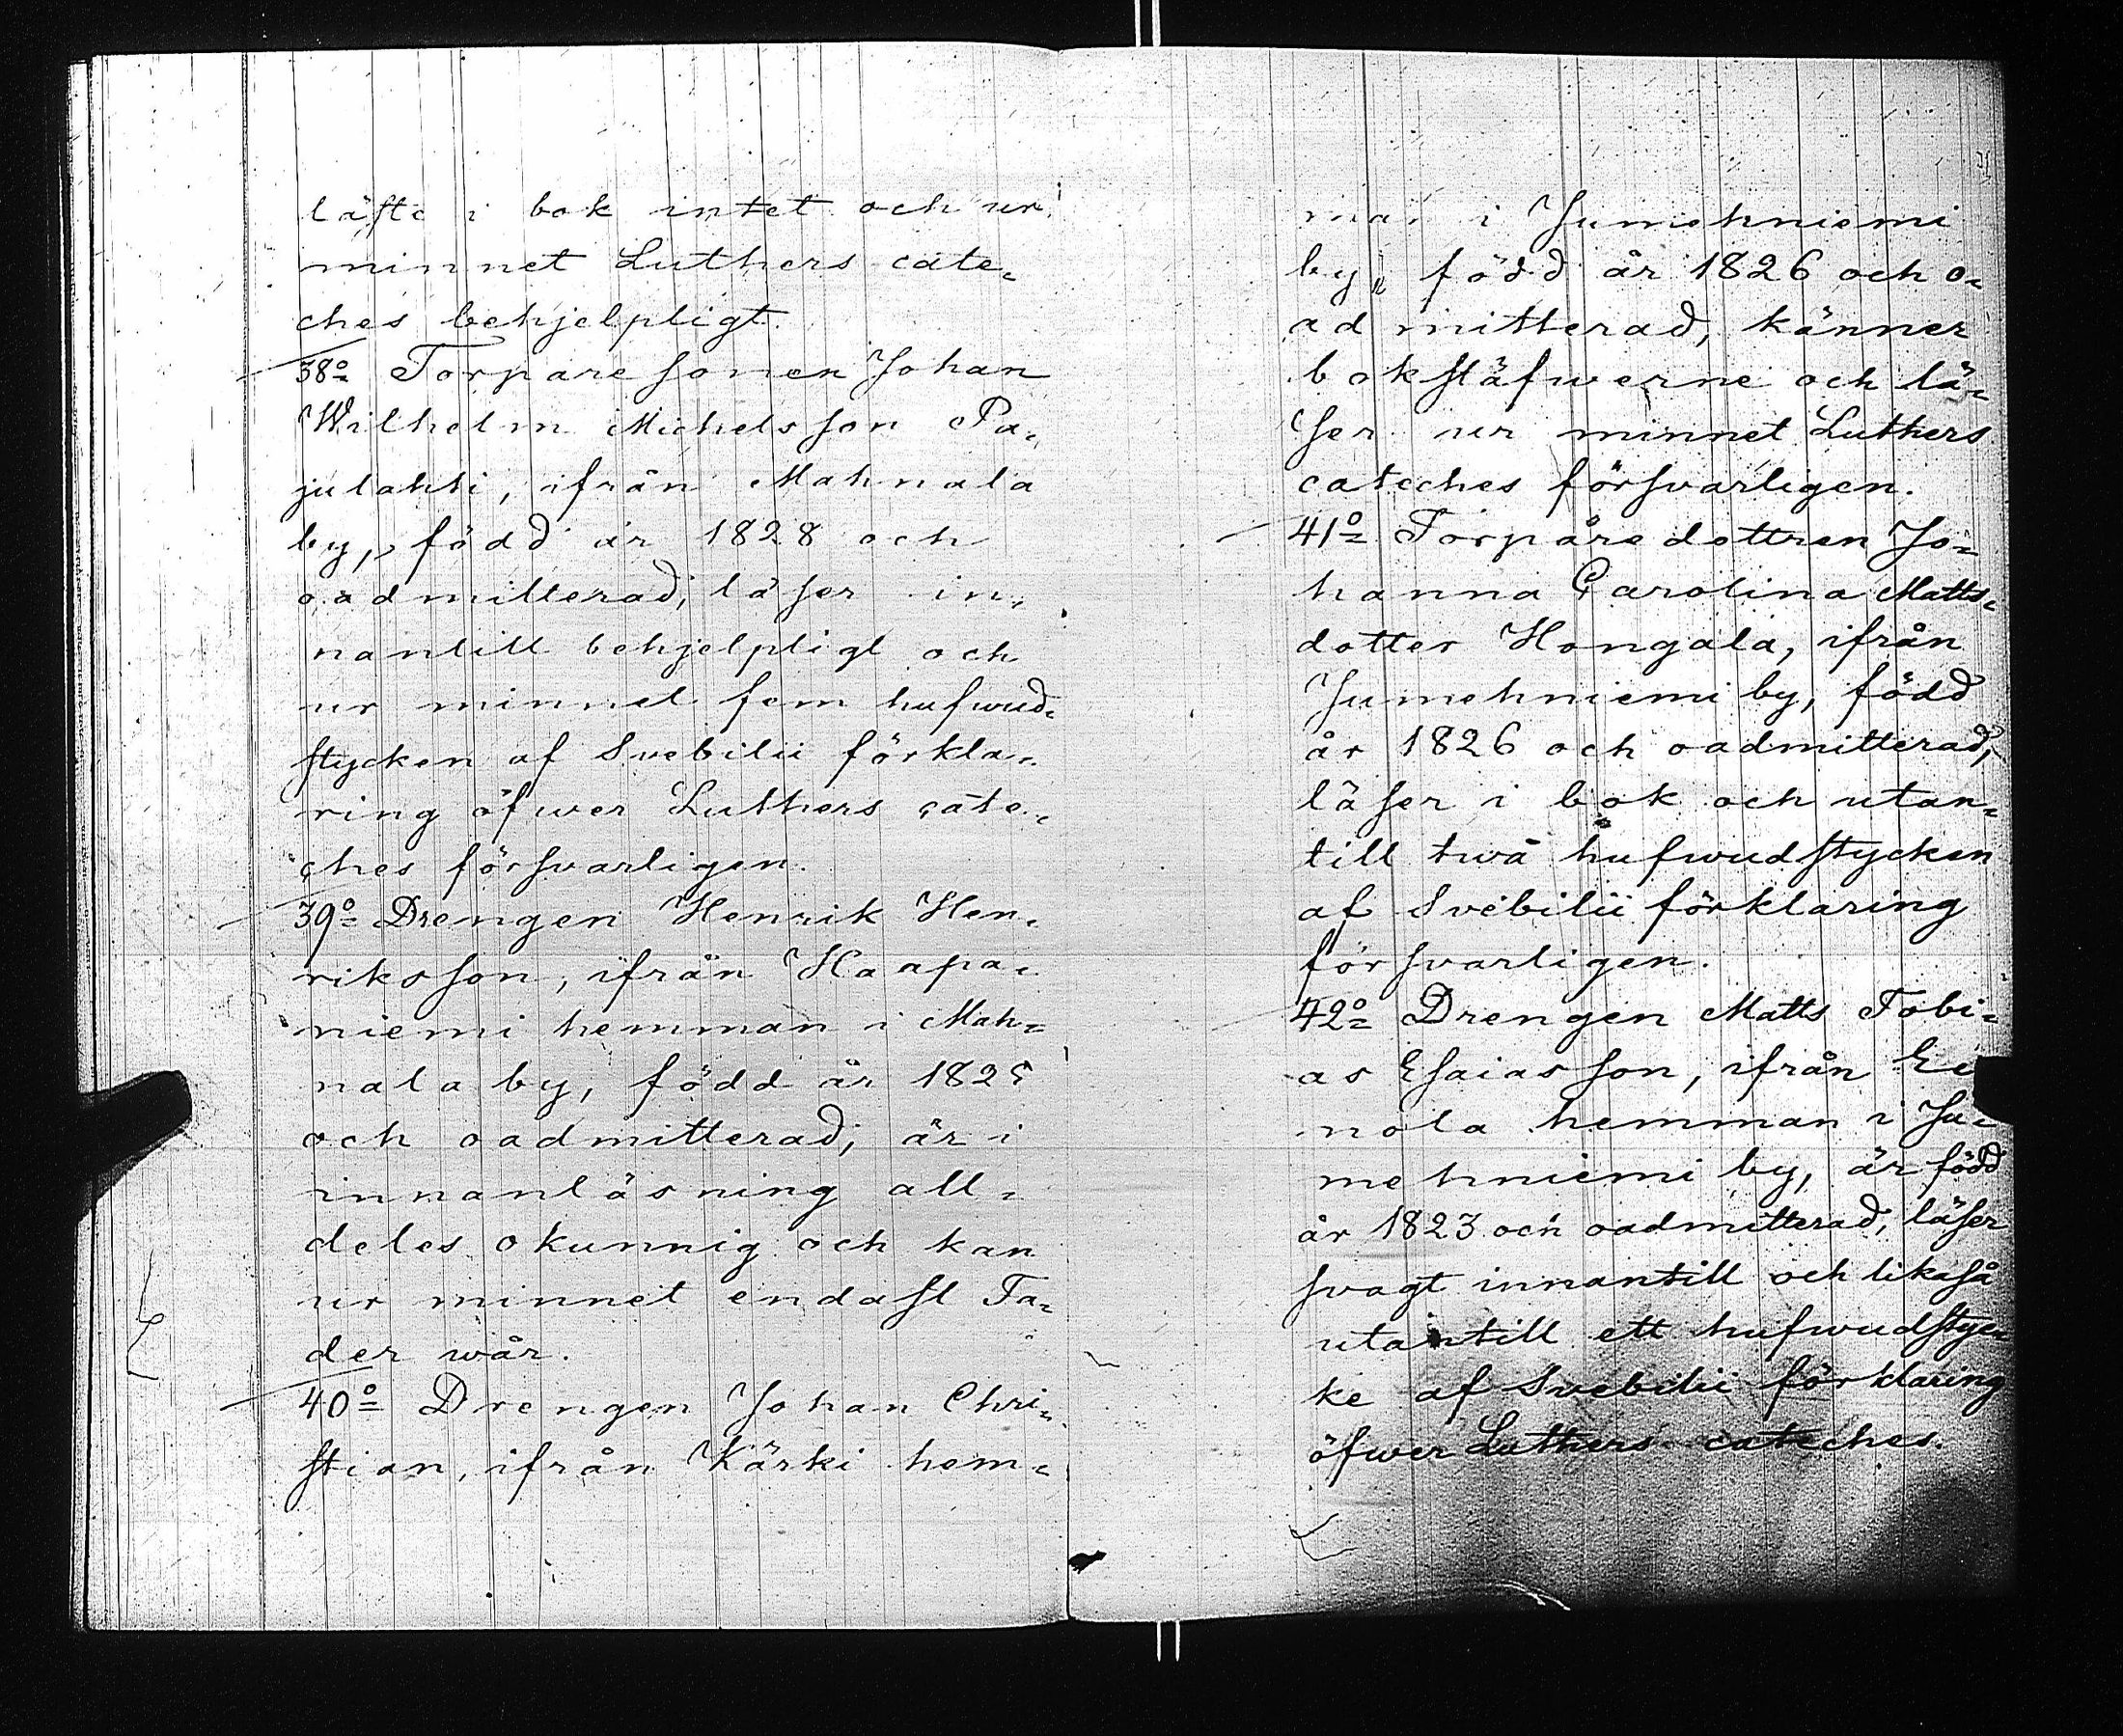 läste i bok intet och ur
minnet Luthers cate-
ches behjelpligt.
38o Torparesonen Johan
Wilhelm Michelsson Pa-
julahti, ifrån Mahnala
by, född år 1828 och
oadmitterad, läser in-
nantill behjelpligt och
ur minnet fem hufwud-
stycken af Svebilii förkla-
ring öfwer Luthers cate-
ches försvarligen.
39o Drengen Henrik Hen-
riksson, ifrån Haapa-
niemi hemman i Mah-
nala by, född år 1825
och oadmitterad, är i
innanläsning all-
deles okunnig och kan
ur minnet endast Fa-
der wår.
40o Drengen Johan Chri-
stian, ifrån Kärki hem-
man i Jumehniemi
by, född år 1826 och o-
admitterad, känner
bokstäfwerne och lä-
ser ur minnet Luthers
cateches försvarligen.
41o Torpåredottren Jo-
hanna Carolina Matts-
dotter Hongala, ifrån
Jumehniemi by, född
år 1826 och oadmitterad,
läser i bok och utan-
till twå hufwudstycken
af Svebilii förklaring
försvarligen.
42o Drengen Matts Tobi-
as Esaiasson, ifrån
nola hemman i Ju-
mehniemi by, är född
år 1823 och oadmitterad, läser
svagt innantill och likaså
utantill ett hufwudstyc-
ke af Svebilii förklaring
öfwer Luthers cateches.